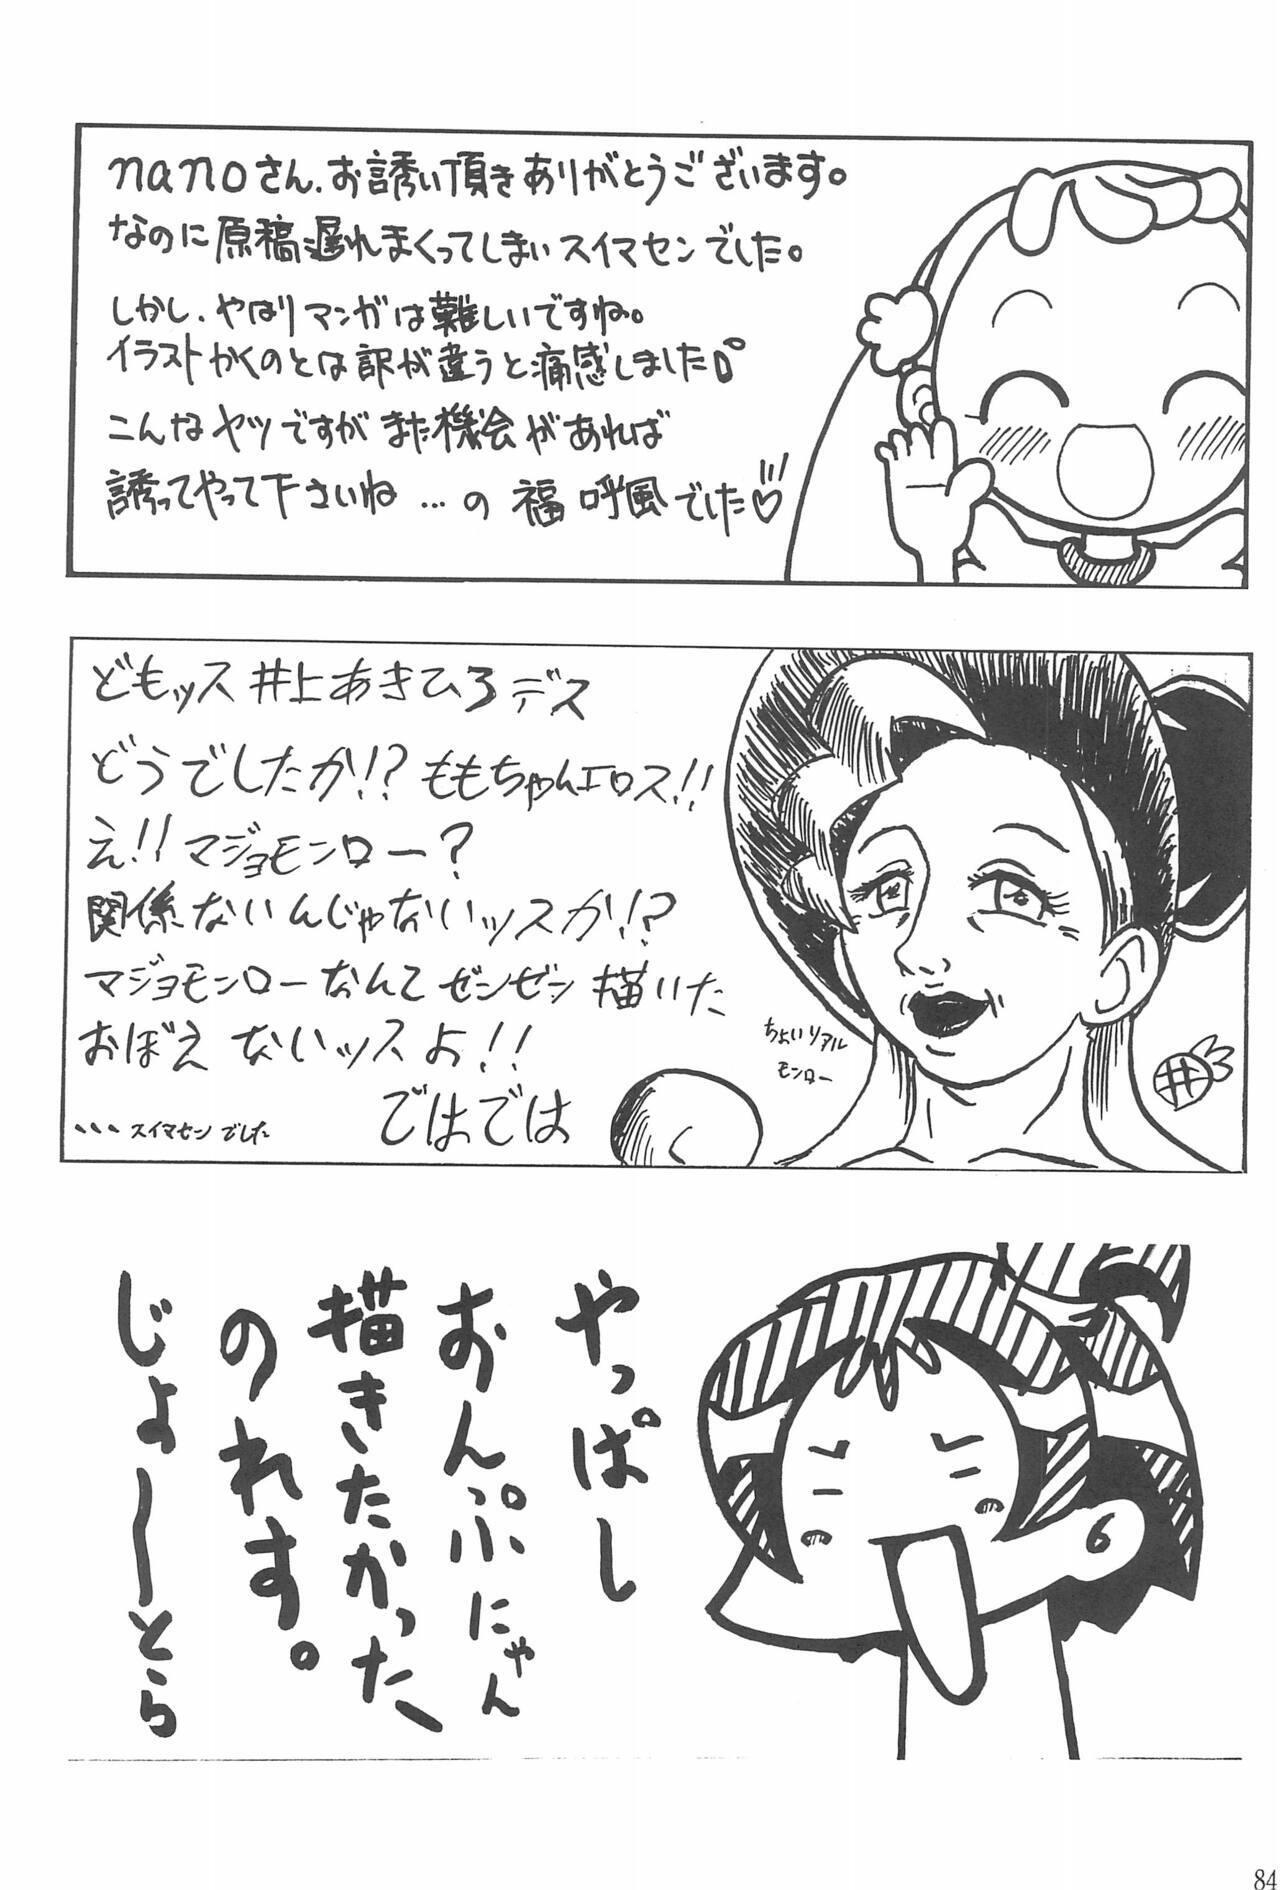 nanoさん、お誘い頂きありがとうございます。
なのに原稿遅れまくってしまいスイマセンでした。
しかし、やはりマンガは難しいですね。
イラストかくのとは訳が違うと痛感しました
こんなヤツですがまた機会があれば
誘ってやって下さいね …の 福 呼風でした♡
どもッス 井上あきひろデス
どうでしたか!? ももちゃんエロス!!
え!! マジョモンロー?
関係ないんじゃないッスか!?
マジョモンローなんてゼンゼン描いた
おぼえ ないッスよ!!
ではでは
、、、スイマセンでした
ちょいリアル
モンロー
井3
やっぱし
おんぷにゃん
描きたかった
のれす。
じょーとら
84